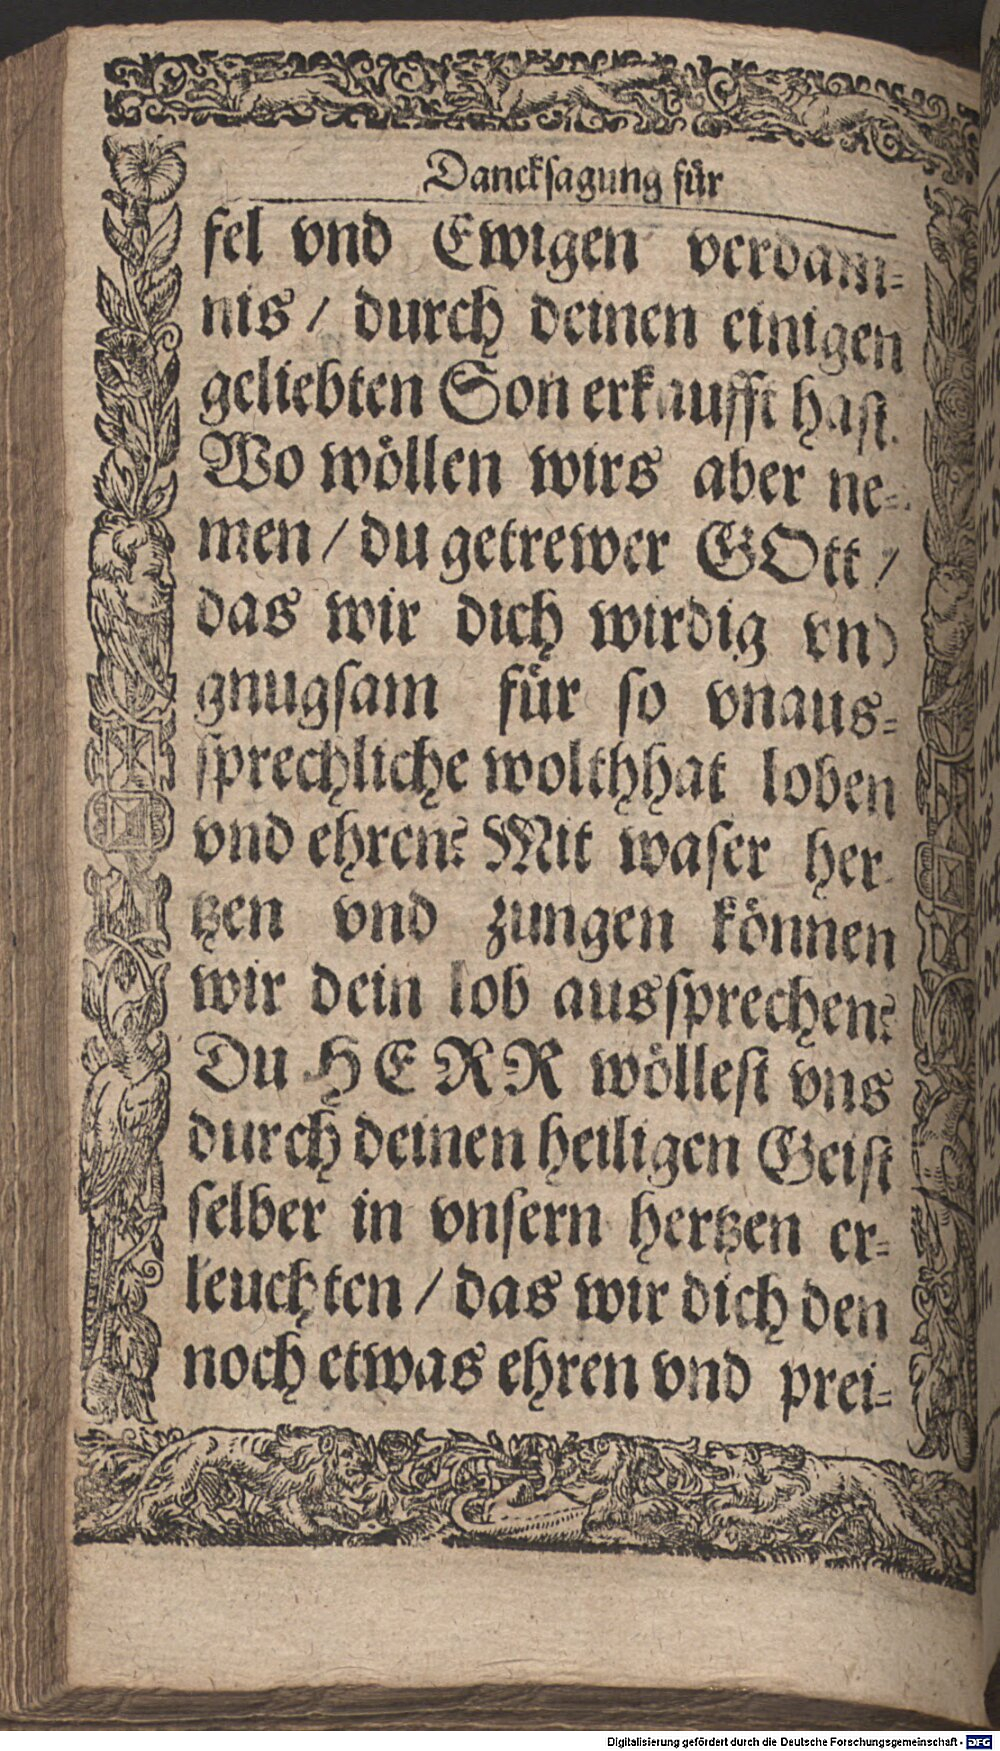 Dancksagung für
fel vnd Ewigen verdam-
nis / durch deinen einigen
geliebten Son erkaufft hast.
Wo wöllen wirs aber ne-
men / du getrewer GOtt /
das wir dich wirdig vnd
gnugsam für so vnaus-
sprechliche wolthhat loben
vnd ehren? Mit waser her
tzen vnd zungen können
wir dein lob aussprechen?
Du HERR wöllest vns
durch deinen heiligen Geist
selber in vnsern hertzen er-
leuchten / das wir dich den
noch etwas ehren vnd prei-
Digitalisierung gefördert durch die Deutsche Forschungsgemeinschaft - DFG